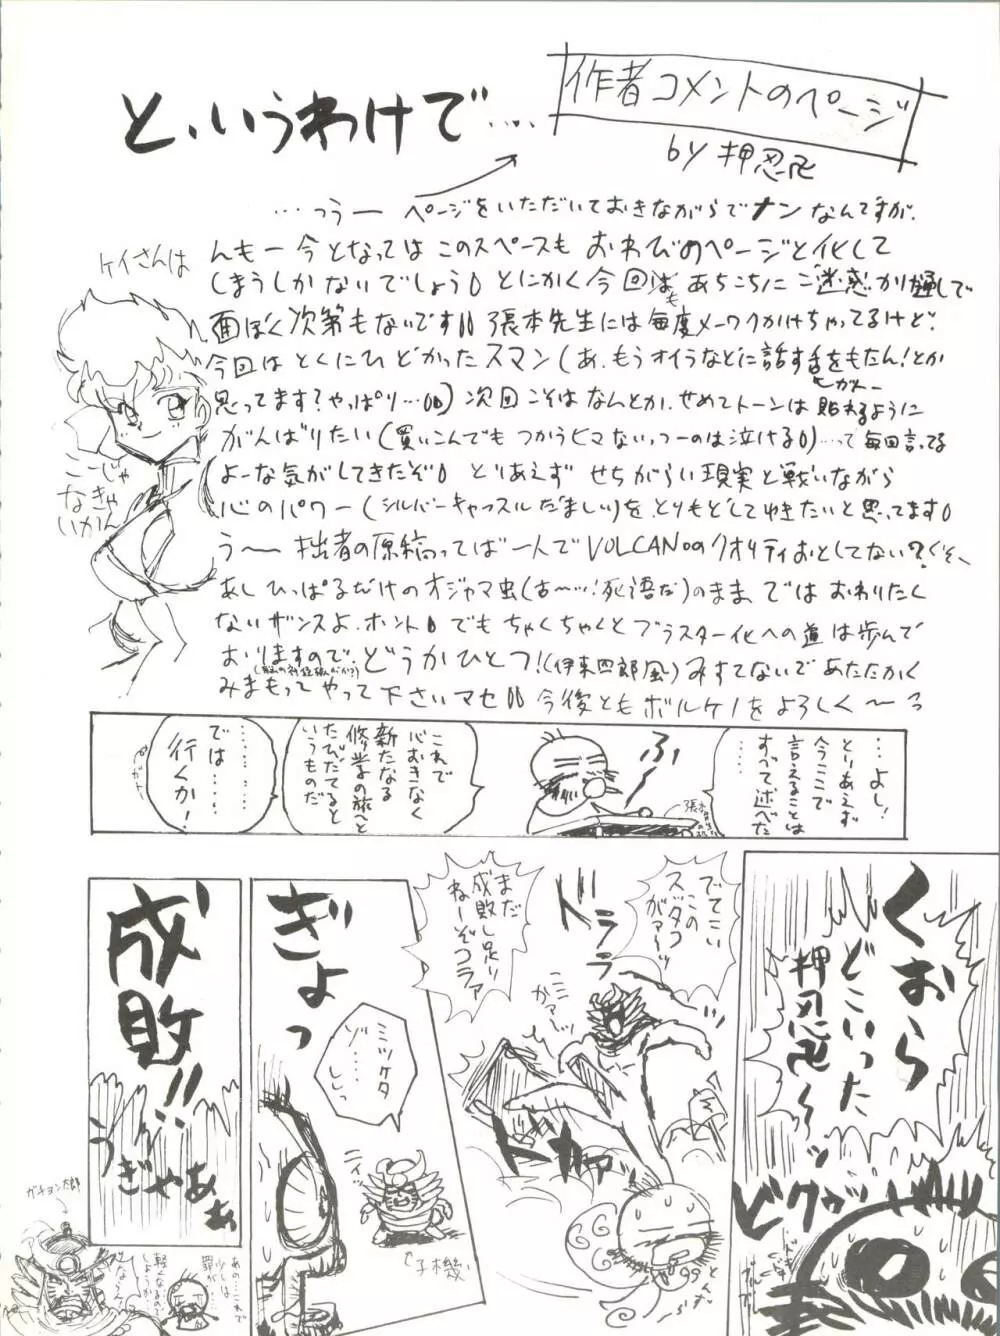 と、いうわけで....
作者コメントのページ
by 押忍
…っうー ページをいただいておきながらでナンなんですが、
んもー今となってはこのスペースもおわびのページと化して
しまうしかないでしょう とにかく今回も あちこちにご迷惑かけ通しで
面ぼく次第もないです 張本先生には毎度メーワクかけちゃってるけど、
今回はとくにひどかったスマン(あ、もうオイラなどに話す舌をもたん!とか
思ってます?やっぱり…)次回こそはなんとか、せめてトーンは貼れるように
がんばりたい(買いこんでもつかうヒマないっつーのは泣ける)…って毎回言ってる
よーな気がしてきたぞ とりあえず せちがらい現実と戦いながら
心のパワー(シルバーキャッスルだましい)を、とりもどしてゆきたいと思ってます
う〜 拙者の原稿ってば一人でVOLCANOのクオリティおとしてない?くそ、
あしひっぱるだけのオジャマ虫(古〜ッ!死語だ)のまま、ではおわりたく
ないザンスよ、ホント でもちゃくちゃくとブラスター化への道は歩んで
おりますので、どうかひとつ!(伊東四郎風)みすてないであたたかく
みまもってやって下さいマセ 今後ともボルケーノをよろしく〜っ
ケイさんは
こーじゃ
なきゃ
いかん
…よし!
とりあえず
今ここで
言えることは
すべて述べた
ふぅ
これで
心おきなく
新たなる
修学の旅へと
たびだてると
いうものだ
では……
行くか!
くおら
どこいった
押忍
〜ッ
ビクゥッ
でてこい
このスッタコ
がァーッ
まだ
成敗し足り
ねーぞコラァ
ドララララ
ドカァッ
ぎょっ
ミツケタ
ゾ…
ニイッ
子機
成敗!!
うぎゃあぁ
ガチョン太郎